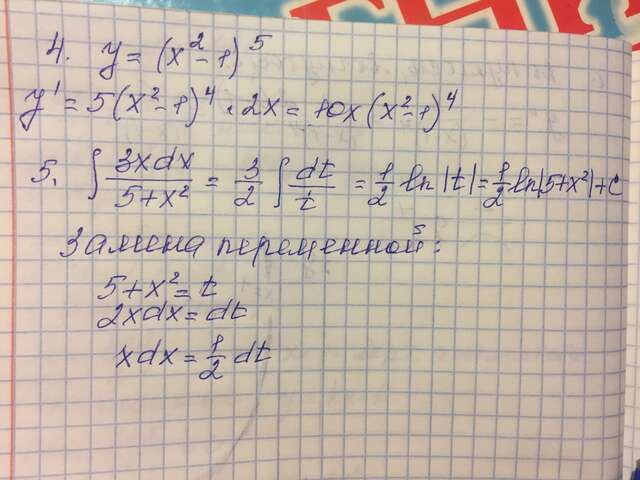 4. y = (x² - 1)⁵
y' = 5(x² - 1)⁴ · 2x = 10x(x² - 1)⁴
5. ∫ 3xdx / 5+x² = 3/2 ∫ dt/t = 1/2 ln |t| = 1/2 ln|5+x²| + C
Замена переменной:
5 + x² = t
2xdx = dt
xdx = 1/2 dt